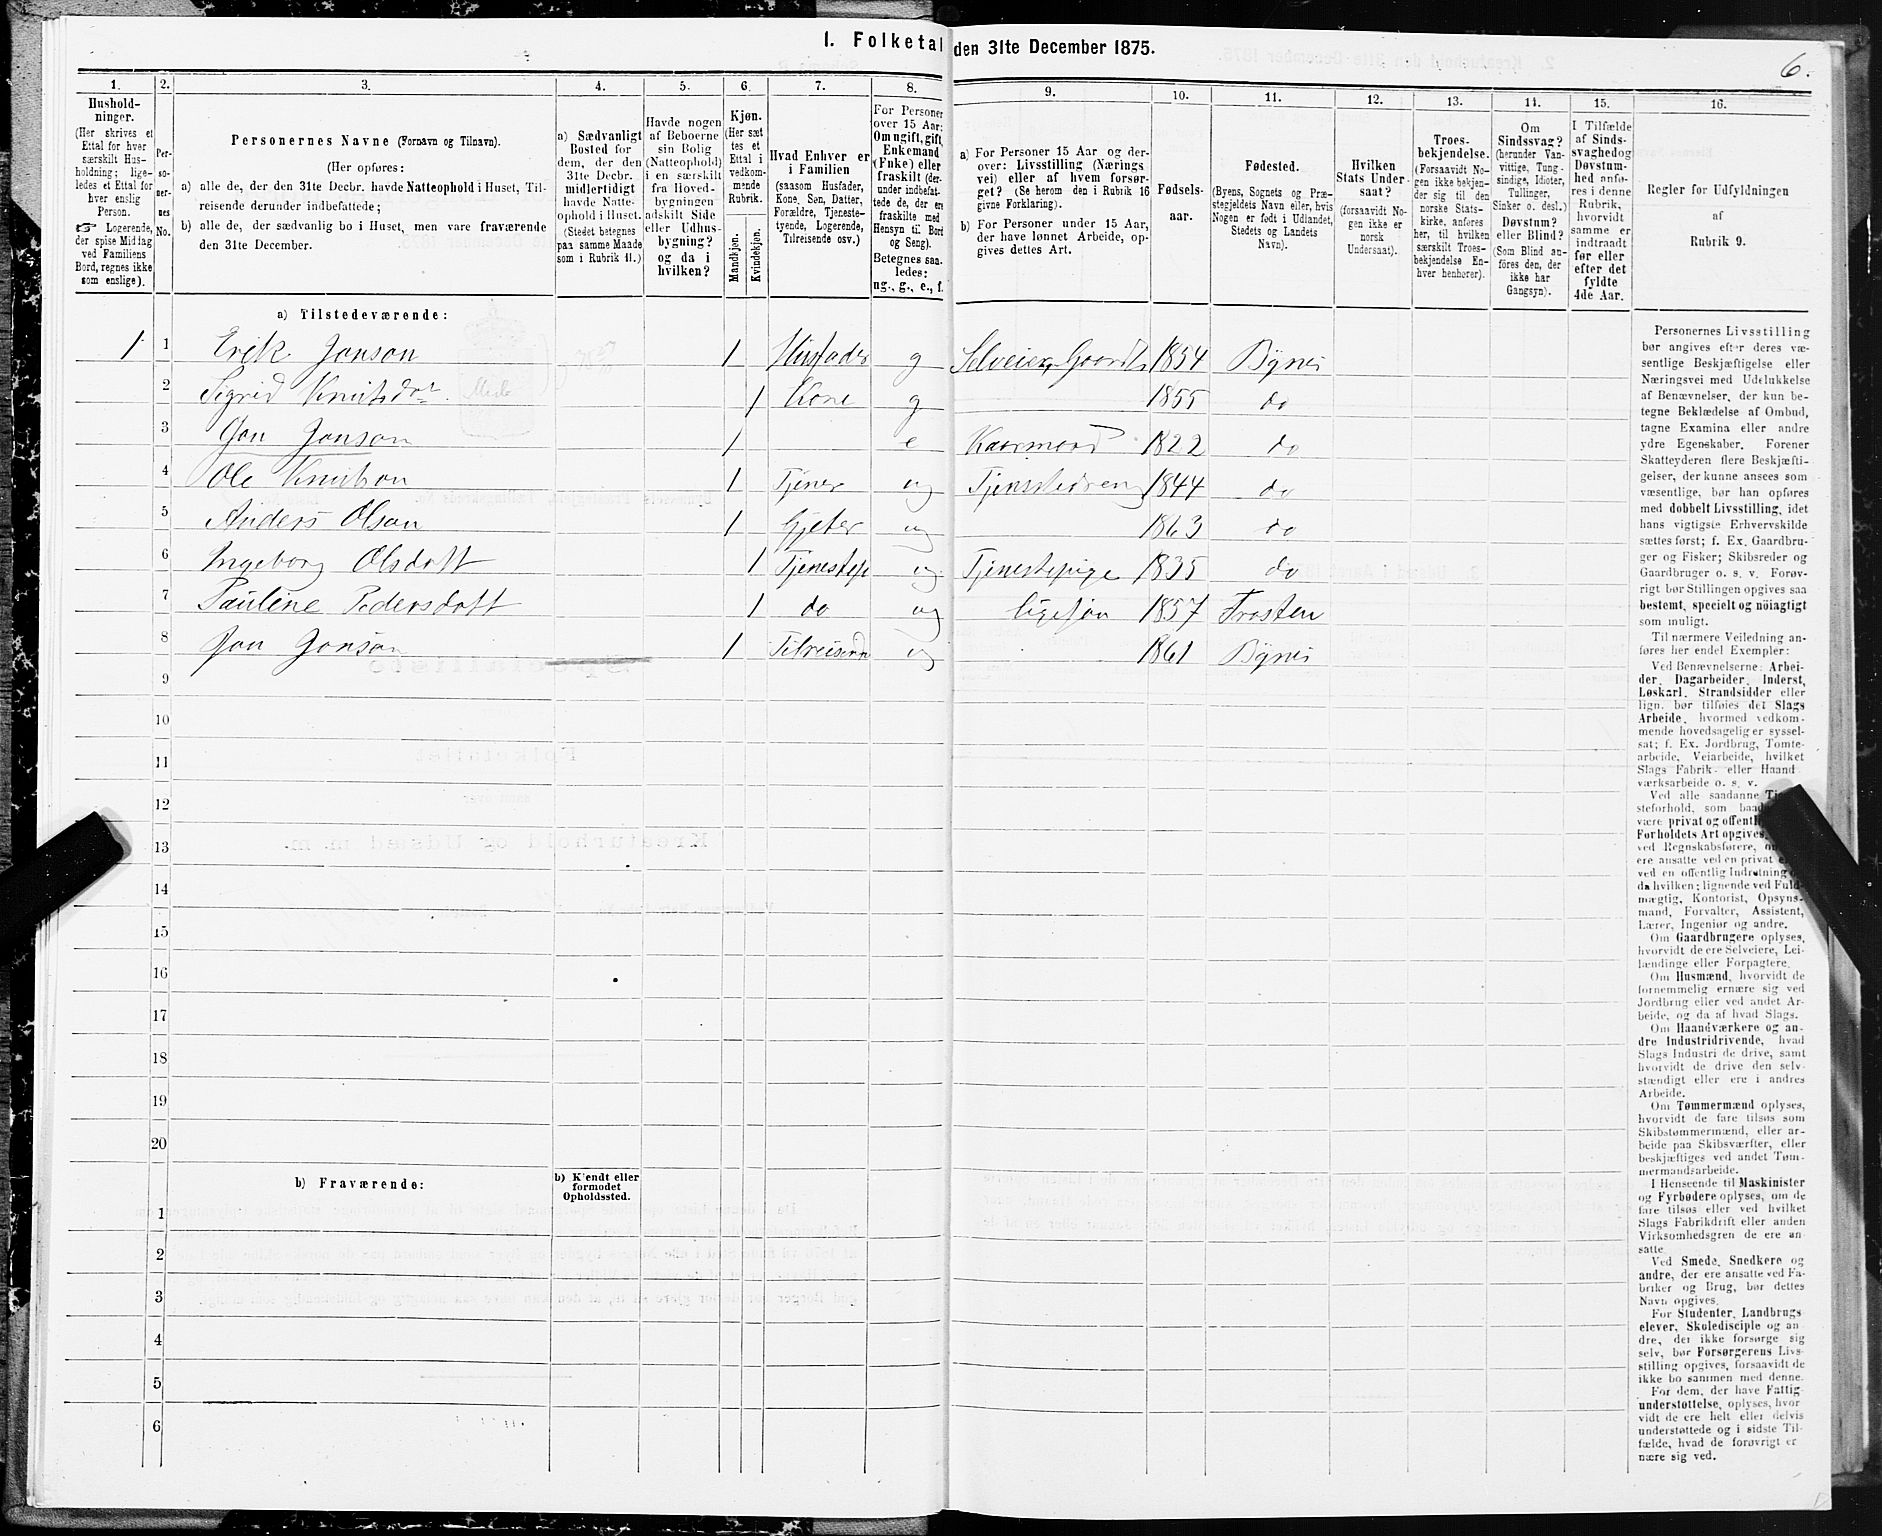 1. Folketal den 31te December 1875.
6.
1. 2. 3. 4. 5. 6. 7. 8. 9. 10. 11. 12. 13. 14. 15. 16.
Hushold-
ninger.
(Her skrives et
Ettal for hver
særskilt Hus-
holdning; lige-
ledes et Ettal for
hver enslig
Person.
☞ Logerende,
der spise Middag
ved Familiens
Bord, regnes ikke
som enslige).
Per-
so-
ner-
nes
No.
Personernes Navne (Fornavn og Tilnavn).
(Her opføres:
a) alle de, der den 31te Decbr. havde Natteophold i Huset, Til-
reisende derunder indbefattede;
b) alle de, der sædvanlig bo i Huset, men vare fraværende
den 31te December.
a) Sædvanligt
Bosted for
dem, der den
31te Decbr.
midlertidigt
havde Natte-
ophold i Huset.
(Stedet betegnes
paa samme Maade
som i Rubrik 11.)
Havde nogen
af Beboerne
sin Bolig
(Natteophold)
i en særskilt
fra Hoved-
bygningen
adskilt Side
eller Udhus-
bygning?
og da i
hvilken?
Kjøn.
(Her sæt
tes et
Ettal i
vedkom-
mende
Rubrik.
Mandkjøn.
Kvindekjøn.
Hvad Enhver er
i Familien
(saasom Husfader,
Kone, Søn, Datter,
Forældre, Tjeneste-
tyende, Logerende,
Tilreisende osv.)
For Personer
over 15 Aar:
Om ugift, gift,
Enkemand
(Enke) eller
fraskilt (der-
under indbefat-
tede de, der ere
fraskilte med
Hensyn til Bord
og Seng).
Betegnes saa-
ledes:
ug., g., e., f.
a) For Personer 15 Aar og der-
over: Livsstilling (Nærings
vei) eller af hvem forsør-
get? (Se herom den i Rubrik 16
givne Forklaring).
b) For Personer under 15 Aar,
der have lønnet Arbeide, op-
gives dettes Art.
Fødsels-
aar.
Fødested.
(Byens, Sognets og Præ-
stegjeldets Navn eller, hvis
Nogen er født i Udlandet,
Stedets og Landets
Navn).
Hvilken
Stats Under-
saat?
(forsaavidt No-
gen ikke er
norsk
Undersaat).
Troes-
bekjendelse.
(Forsaavidt No-
gen ikke bekjen-
der sig til den
norske Stats-
kirke, anføres
her, til hvilken
særskilt Troes-
bekjendelse En-
hver henhører).
Om
Sindssvag?
(herunder Van-
vittige, Tung-
sindige, Idioter,
Tullinger,
Sinker o. desl.)
Døvstum?
eller Blind?
(Som Blind an-
føres den, der
ikke har
Gangsyn).
I Tilfælde
af Sinds-
svaghed og
Døvstum-
hed anfø-
res i denne
Rubrik,
hvorvidt
samme er
indtraadt
før eller
efter det
fyldte
4de Aar.
Regler for Udfyldningen
af
Rubrik 9.
a) Tilstedeværende:
1 1 Erik Jonson 1 Husfader g Selveier, Gaardb 1854 Bynes
2 Sigrid Knutsdotr 1 Kone g 1855 do
3 Jon Jonson 1 e Kaarmand 1822 do
4 Ole Knutson 1 Tjener ug Tjenestedreng 1844 do
5 Anders Olson 1 Gjeter ug 1863 do
6 Ingeborg Olsdatt 1 Tjenestepi ug Tjenestepige 1835 do
7 Pauline Pedersdatt 1 do ug ligesom 1857 Frosten
8 Jon Jonson 1 Tilreisend ug 1861 Bynes
9
10
11
12
13
14
15
16
17
18
19
20
b) Fraværende:
b) Kjendt eller
formodet
Opholdssted.
1
2
3
4
5
6
Personernes Livsstilling
bør angives efter deres væ-
sentlige Beskjæftigelse eller
Næringsvei med Udelukkelse
af Benævnelser, der kun be-
tegne Beklædelse af Ombud,
tagne Examina eller andre
ydre Egenskaber. Forener
Skatteyderen flere Beskjæfti-
gelser, der kunne ansees som
væsentlige, bør han opføres
med dobbelt Livsstilling, idet
hans vigtigste Erhvervskilde
sættes først; f. Ex. Gaardbru-
ger og Fisker; Skibsreder og
Gaardbruger o. s. v. Forøv-
rigt bør Stillingen opgives saa
bestemt, specielt og nöiagtigt
som muligt.
Til nærmere Veiledning an-
føres her endel Exempler:
Ved Benævnelserne: Arbei-
der, Dagarbeider, Inderst,
Løskarl, Strandsidder eller
lign. bør tilføies det Slags
Arbeide, hvormed vedkom-
mende hovedsagelig er syssel-
sat; f. Ex. Jordbrug, Tomte-
arbeide, Veiarbeide, hvilket
Slags Fabrik- eller Haand
værksarbeide o. s. v.
Ved alle saadanne
steforhold, som
være privat og
Forholdets Art opgives,
ved Regnskabsførere,
ere ansatte ved en privat
ved en offentlig Indretning
da hvilken; lignende ved Fuld-
mægtig, Kontorist, Opsyns-
mand, Forvalter, Assistent,
Lærer, Ingeniør og andre.
Om Gaardbrugere oplyses,
hvorvidt de ere Selveiere, Lei-
lændinge eller Forpagtere.
Om Husmænd, hvorvidt de
fornemmelig ernære sig ved
Jordbrug eller ved andet Ar-
beide, og da af hvad Slags.
Om Haandværkere og an-
dre Industridrivende, hvad
Slags Industri de drive, samt
hvorvidt de drive den selv-
stændigt eller ere i andres
Arbeide.
Om Tømmermænd oplyses,
hvorvidt de fare tilsøs som
Skibstømmermænd, eller ar-
beide paa Skibsværfter, eller
beskjæftiges ved andet Tøm-
mermandsarbeide.
I Henseende til Maskinister
og Fyrbødere oplyses, om de
fare tilsøs eller ved hvilket
Slags Fabrikdrift eller anden
Virksomhedsgren de ere an-
satte.
Ved Smede, Snedkere og
andre, der ere ansatte ved Fa-
briker og Brug, bør dettes
Navn opgives.
For Studenter, Landbrugs
elever, Skoledisciple og an-
dre, der ikke forsørge sig
selv, bør Forsørgerens Livs-
stilling opgives, forsaavidt de
ikke bo sammen med denne.
For dem, der have Fattig-
understøttelse, oplyses, hvor
vidt de ere helt eller delvis
understøttede og i sidste Til-
fælde, hvad de forøvrigt er
nære sig ved.